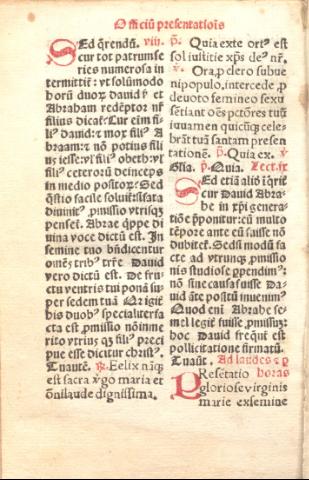 Officiũ presentatiõis
SEd q̃rendũ. viij.
cur tot patrum se
ries numerosa in
termittit̃: vt solũmodo
horũ duorꝝ dauid ⁊
Abraham redẽptor nr̃
filius dicat᷑. Cur eim fili
us dauid: ⁊ mox filiꝰ A
braam: ⁊ nõ potius filii
us iesse: vl̃ filiꝰ obeth: vl̃
filiꝰ ceterorũ deinceps
in medio positorꝝ: Sed
q̃stio facile soluit᷑: si fata
diuinit᷑ ꝓmissio vtrisqꝫ
penset᷑. Abrae q̃ppe di
uina voce dictũ est. In
semine tuo bñdicentur
oẽs trib᷒ tr̃e Dauid
vero dictũ est. De fru
ctu ventris tui ponã su
per sedem tuã Qr igit᷑
his duobꝰ specialiter fa
cta est ꝓmissio nõ inme
rito vtriusqꝫ filiꝰ preci
pue esse dicitur christꝰ.
Tu aut̃e. ℟. Felix nãqꝫ
est sacra v̓go maria et
om̃i laude dignissima.
p̃. Quia ex te ortꝰ est
sol iustitie xp̃s deꝰ nr̃.
℣. Ora, ꝓ clero subue
ni populo, intercede ꝓ
deuoto femineo sexu
sẽtiant oẽs pctõres tuũ
iuuamen quicũqꝫ celeb
brãt tuã sanctam presen
tationẽ. p̃. Quia ex. ℣
Glia. p̃. Quia. Lect. ix
SEd etiã alio iq̃rit᷑
cur Dauid ⁊ Abra
he in xp̃i genera
tiõe p̃ponitur: eũ multo
tẽpore ante eũ fuisse nõ
dubitet᷑. Sed si modũ fa
cte ad vtrunqꝫ ꝓmissio
nis studiose ꝓpendim᷒:
nõ sine causa fuisse Da
uid ãte positũ inuenim᷒
Quod eni Abrahe se
mel legit᷑ fuisse ꝓmissuꝫ:
hoc Dauid freq̃ẽt̃ est
pollicitatione firmatũ.
Tu aũt. Ad laudes ⁊ p
PResẽtatio horas
gloriose virginis
marie ex semine